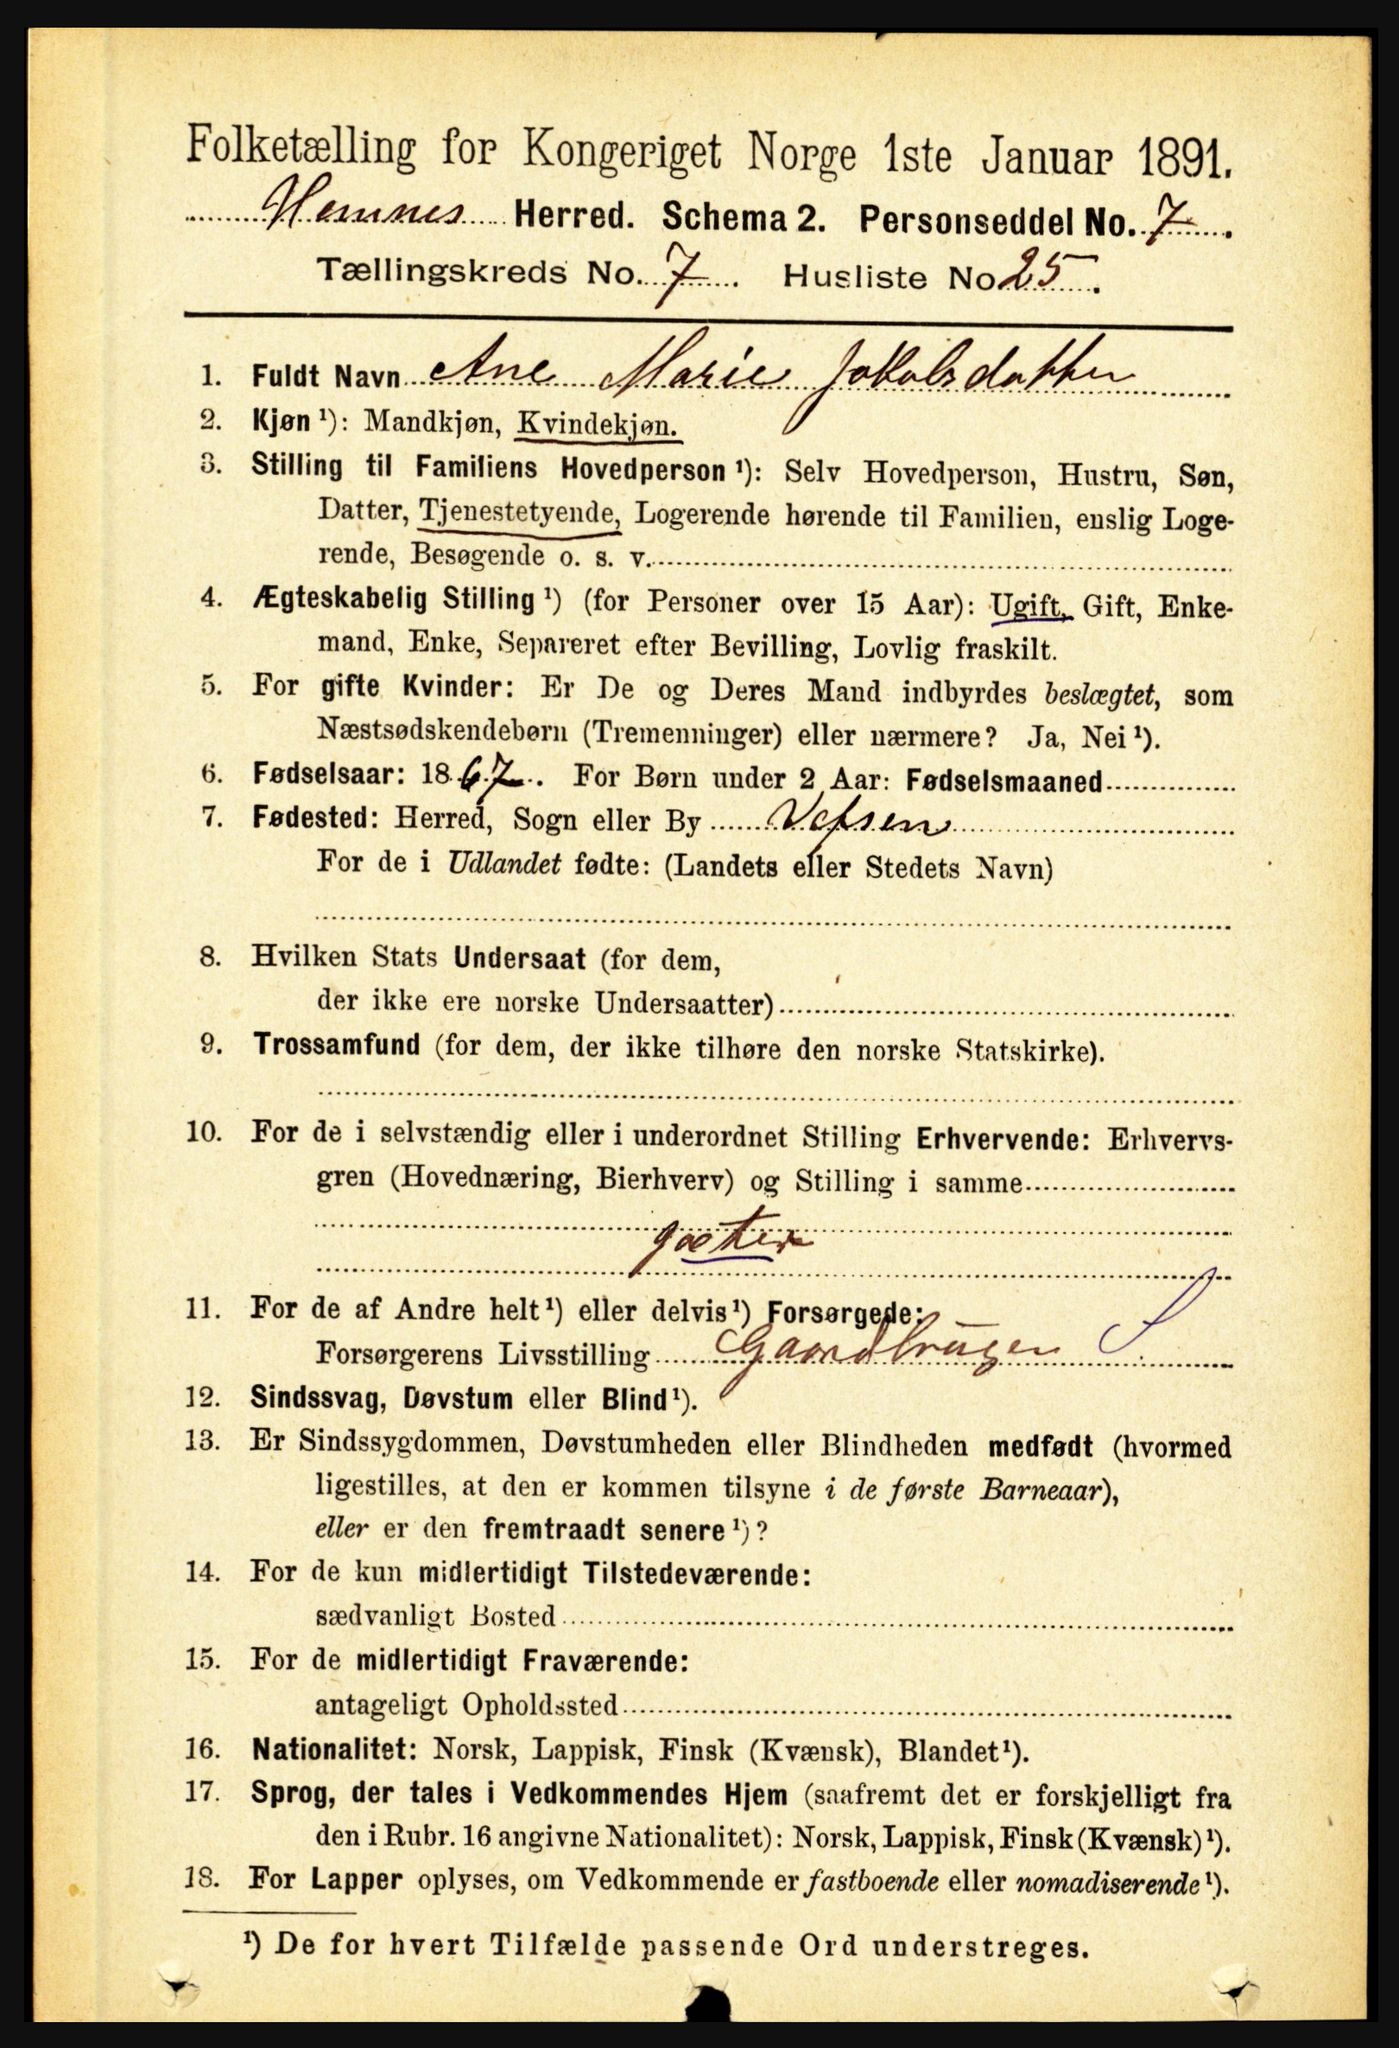 Folketælling for Kongeriget Norge 1ste Januar 1891.
Hemnes Herred. Schema 2. Personseddel No. 7.
Tællingskreds No. 7. Husliste No 25.
1. Fuldt Navn Ane Marie Jakobsdatter
2. Kjøn ¹): Mandkjøn, Kvindekjøn.
3. Stilling til Familiens Hovedperson ¹): Selv Hovedperson, Hustru, Søn,
Datter, Tjenestetyende, Logerende hørende til Familien, enslig Loge-
rende, Besøgende o. s. v.
4. Ægteskabelig Stilling ¹) (for Personer over 15 Aar): Ugift, Gift, Enke-
mand, Enke, Separeret efter Bevilling, Lovlig fraskilt.
5. For gifte Kvinder: Er De og Deres Mand indbyrdes beslægtet, som
Næstsødskendebørn (Tremenninger) eller nærmere? Ja, Nei ¹).
6. Fødselsaar: 1867. For Børn under 2 Aar: Fødselsmaaned
7. Fødested: Herred, Sogn eller By Vefsen
For de i Udlandet fødte: (Landets eller Stedets Navn)
8. Hvilken Stats Undersaat (for dem,
der ikke ere norske Undersaatter)
9. Trossamfund (for dem, der ikke tilhøre den norske Statskirke).
10. For de i selvstændig eller i underordnet Stilling Erhvervende: Erhvervs-
gren (Hovednæring, Bierhverv) og Stilling i samme
gæter
11. For de af Andre helt ¹) eller delvis ¹) Forsørgede:
Forsørgerens Livsstilling Gaardbruger S
12. Sindssvag, Døvstum eller Blind ¹).
13. Er Sindssygdommen, Døvstumheden eller Blindheden medfødt (hvormed
ligestilles, at den er kommen tilsyne i de første Barneaar),
eller er den fremtraadt senere ¹)?
14. For de kun midlertidigt Tilstedeværende:
sædvanligt Bosted
15. For de midlertidigt Fraværende:
antageligt Opholdssted
16. Nationalitet: Norsk, Lappisk, Finsk (Kvænsk), Blandet ¹).
17. Sprog, der tales i Vedkommendes Hjem (saafremt det er forskjelligt fra
den i Rubr. 16 angivne Nationalitet): Norsk, Lappisk, Finsk (Kvænsk) ¹).
18. For Lapper oplyses, om Vedkommende er fastboende eller nomadiserende ¹).
¹) De for hvert Tilfælde passende Ord understreges.